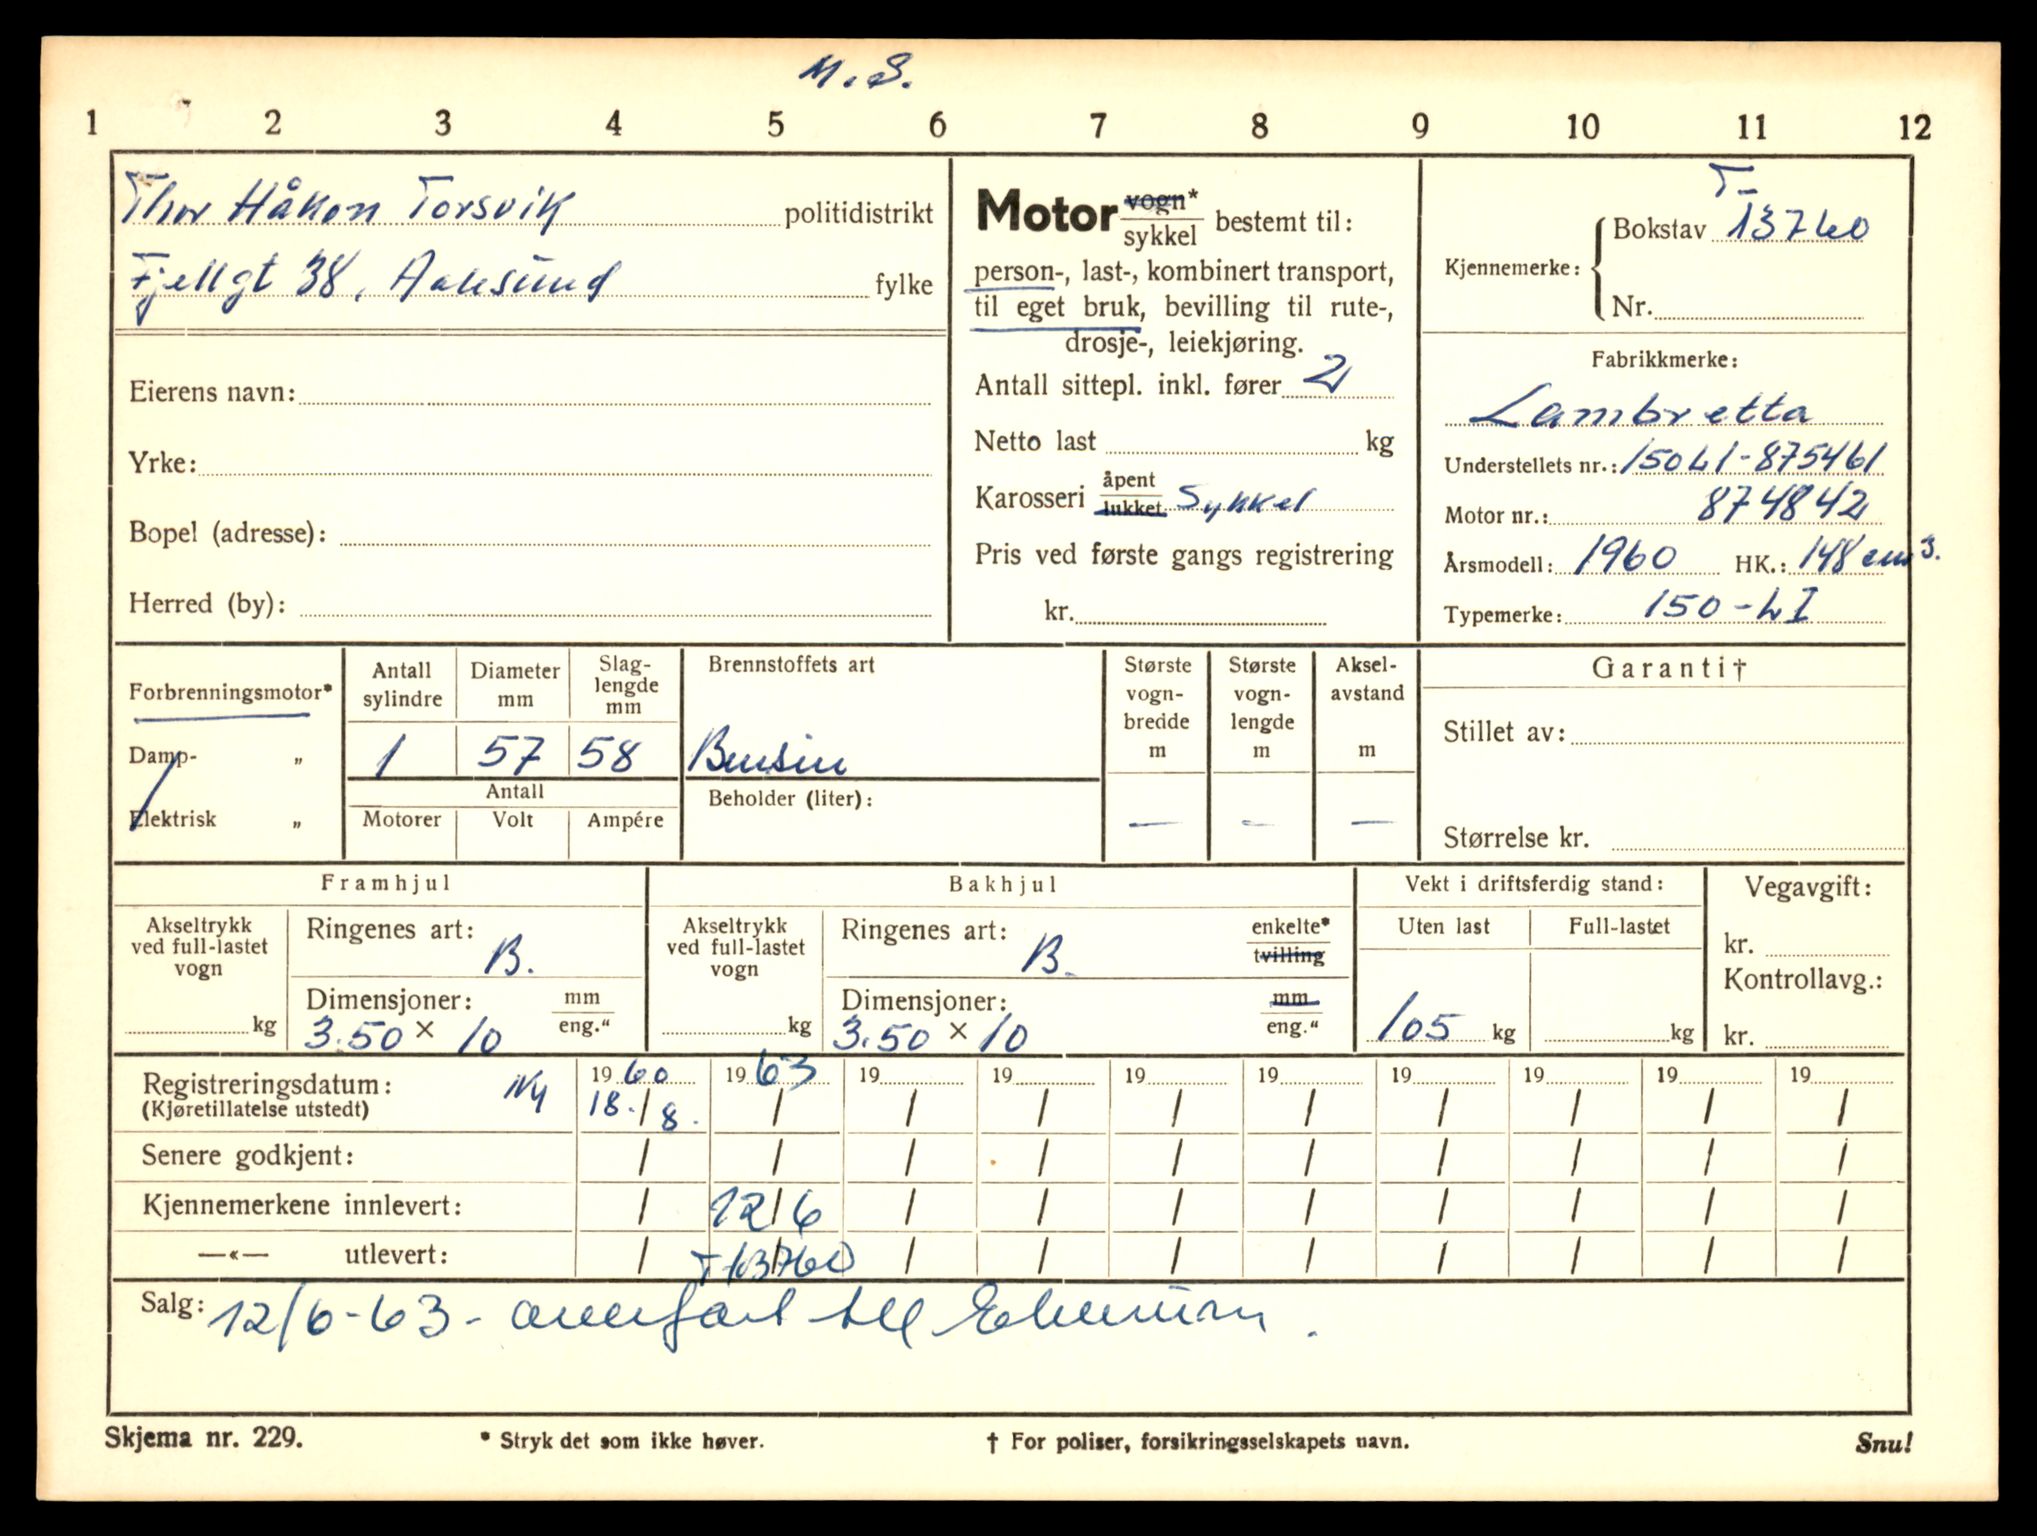 M.S.
1 2 3 4 5 6 7 8 9 10 11 12
Thor Håkon Torsvik politidistrikt
Fjellgt 38, Aalesund fylke
Eierens navn:
Yrke:
Bopel (adresse):
Herred (by):
Motor vogn* sykkel bestemt til:
person-, last-, kombinert transport,
til eget bruk, bevilling til rute-,
drosje-, leiekjøring.
Antall sittepl. inkl. fører 2
Netto last kg
Karosseri åpent lukket Sykkel
Pris ved første gangs registrering
kr.
T-
Kjennemerke: Bokstav 13760
Nr.
Fabrikkmerke:
Lambretta
Understellets nr.: 150LI-875461
Motor nr.: 874842
Årsmodell: 1960 HK.: 148 cm3.
Typemerke: 150-LI
Forbrenningsmotor*
Damp- „
Elektrisk „
Antall sylindre
Diameter mm
Slag-lengde mm
1 57 58
Antall
Motorer Volt Ampére
Brennstoffets art
Bensin
Beholder (liter):
Største vogn-bredde m
Største vogn-lengde m
Aksel-avstand m
— — —
Garanti†
Stillet av:
Størrelse kr.
Framhjul
Akseltrykk ved full-lastet vogn
kg
Ringenes art: B.
Dimensjoner: mm eng.“
3.50 × 10
Bakhjul
Akseltrykk ved full-lastet vogn
kg
Ringenes art: B. enkelte* tvilling
Dimensjoner: mm eng.“
3.50 × 10
Vekt i driftsferdig stand:
Uten last Full-lastet
105 kg kg
Vegavgift:
kr.
Kontrollavg.:
kr.
Registreringsdatum: Ny 1960 1963 19 19 19 19 19 19 19 19
(Kjøretillatelse utstedt) 18./8. / / / / / / / / /
Senere godkjent: / / / / / / / / / /
Kjennemerkene innlevert: / 12/6 / / / / / / / /
—«— utlevert: / T-13760 / / / / / / / /
Salg: 12/6-63- till
Skjema nr. 229. * Stryk det som ikke høver. † For poliser, forsikringsselskapets navn. Snu!